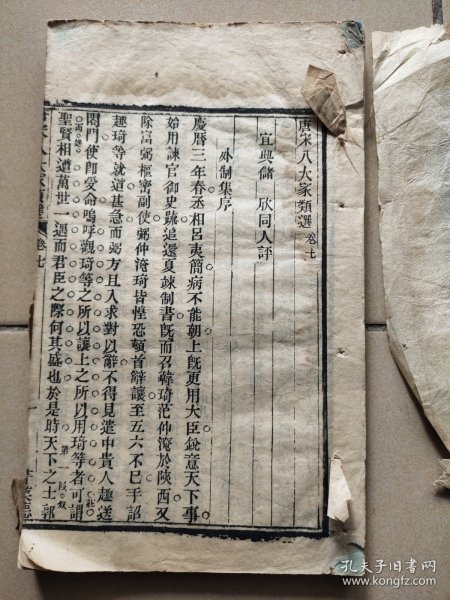 唐宋八大家類選 卷七
宜興儲 欣同人評
外制集序
慶曆三年春丞相呂夷簡病不能朝上既更用大臣銳意天下事
始用諫官御史疏追還夏竦制書既而召韓琦范仲淹於陝西又
除富弼樞密副使弼仲淹琦皆惶恐頓首辭讓至五六不已手詔
趣琦等就道甚急而弼方且入求對以辭不得見遣中貴人趣送
閤門使即受命嗚呼觀琦等之所以讓上之所以用琦等者可謂
聖賢相遭萬世一遇而君臣之際何其盛也於是時天下之士郭
第一段叙
卷七
孔夫子旧书网
www.kongfz.com